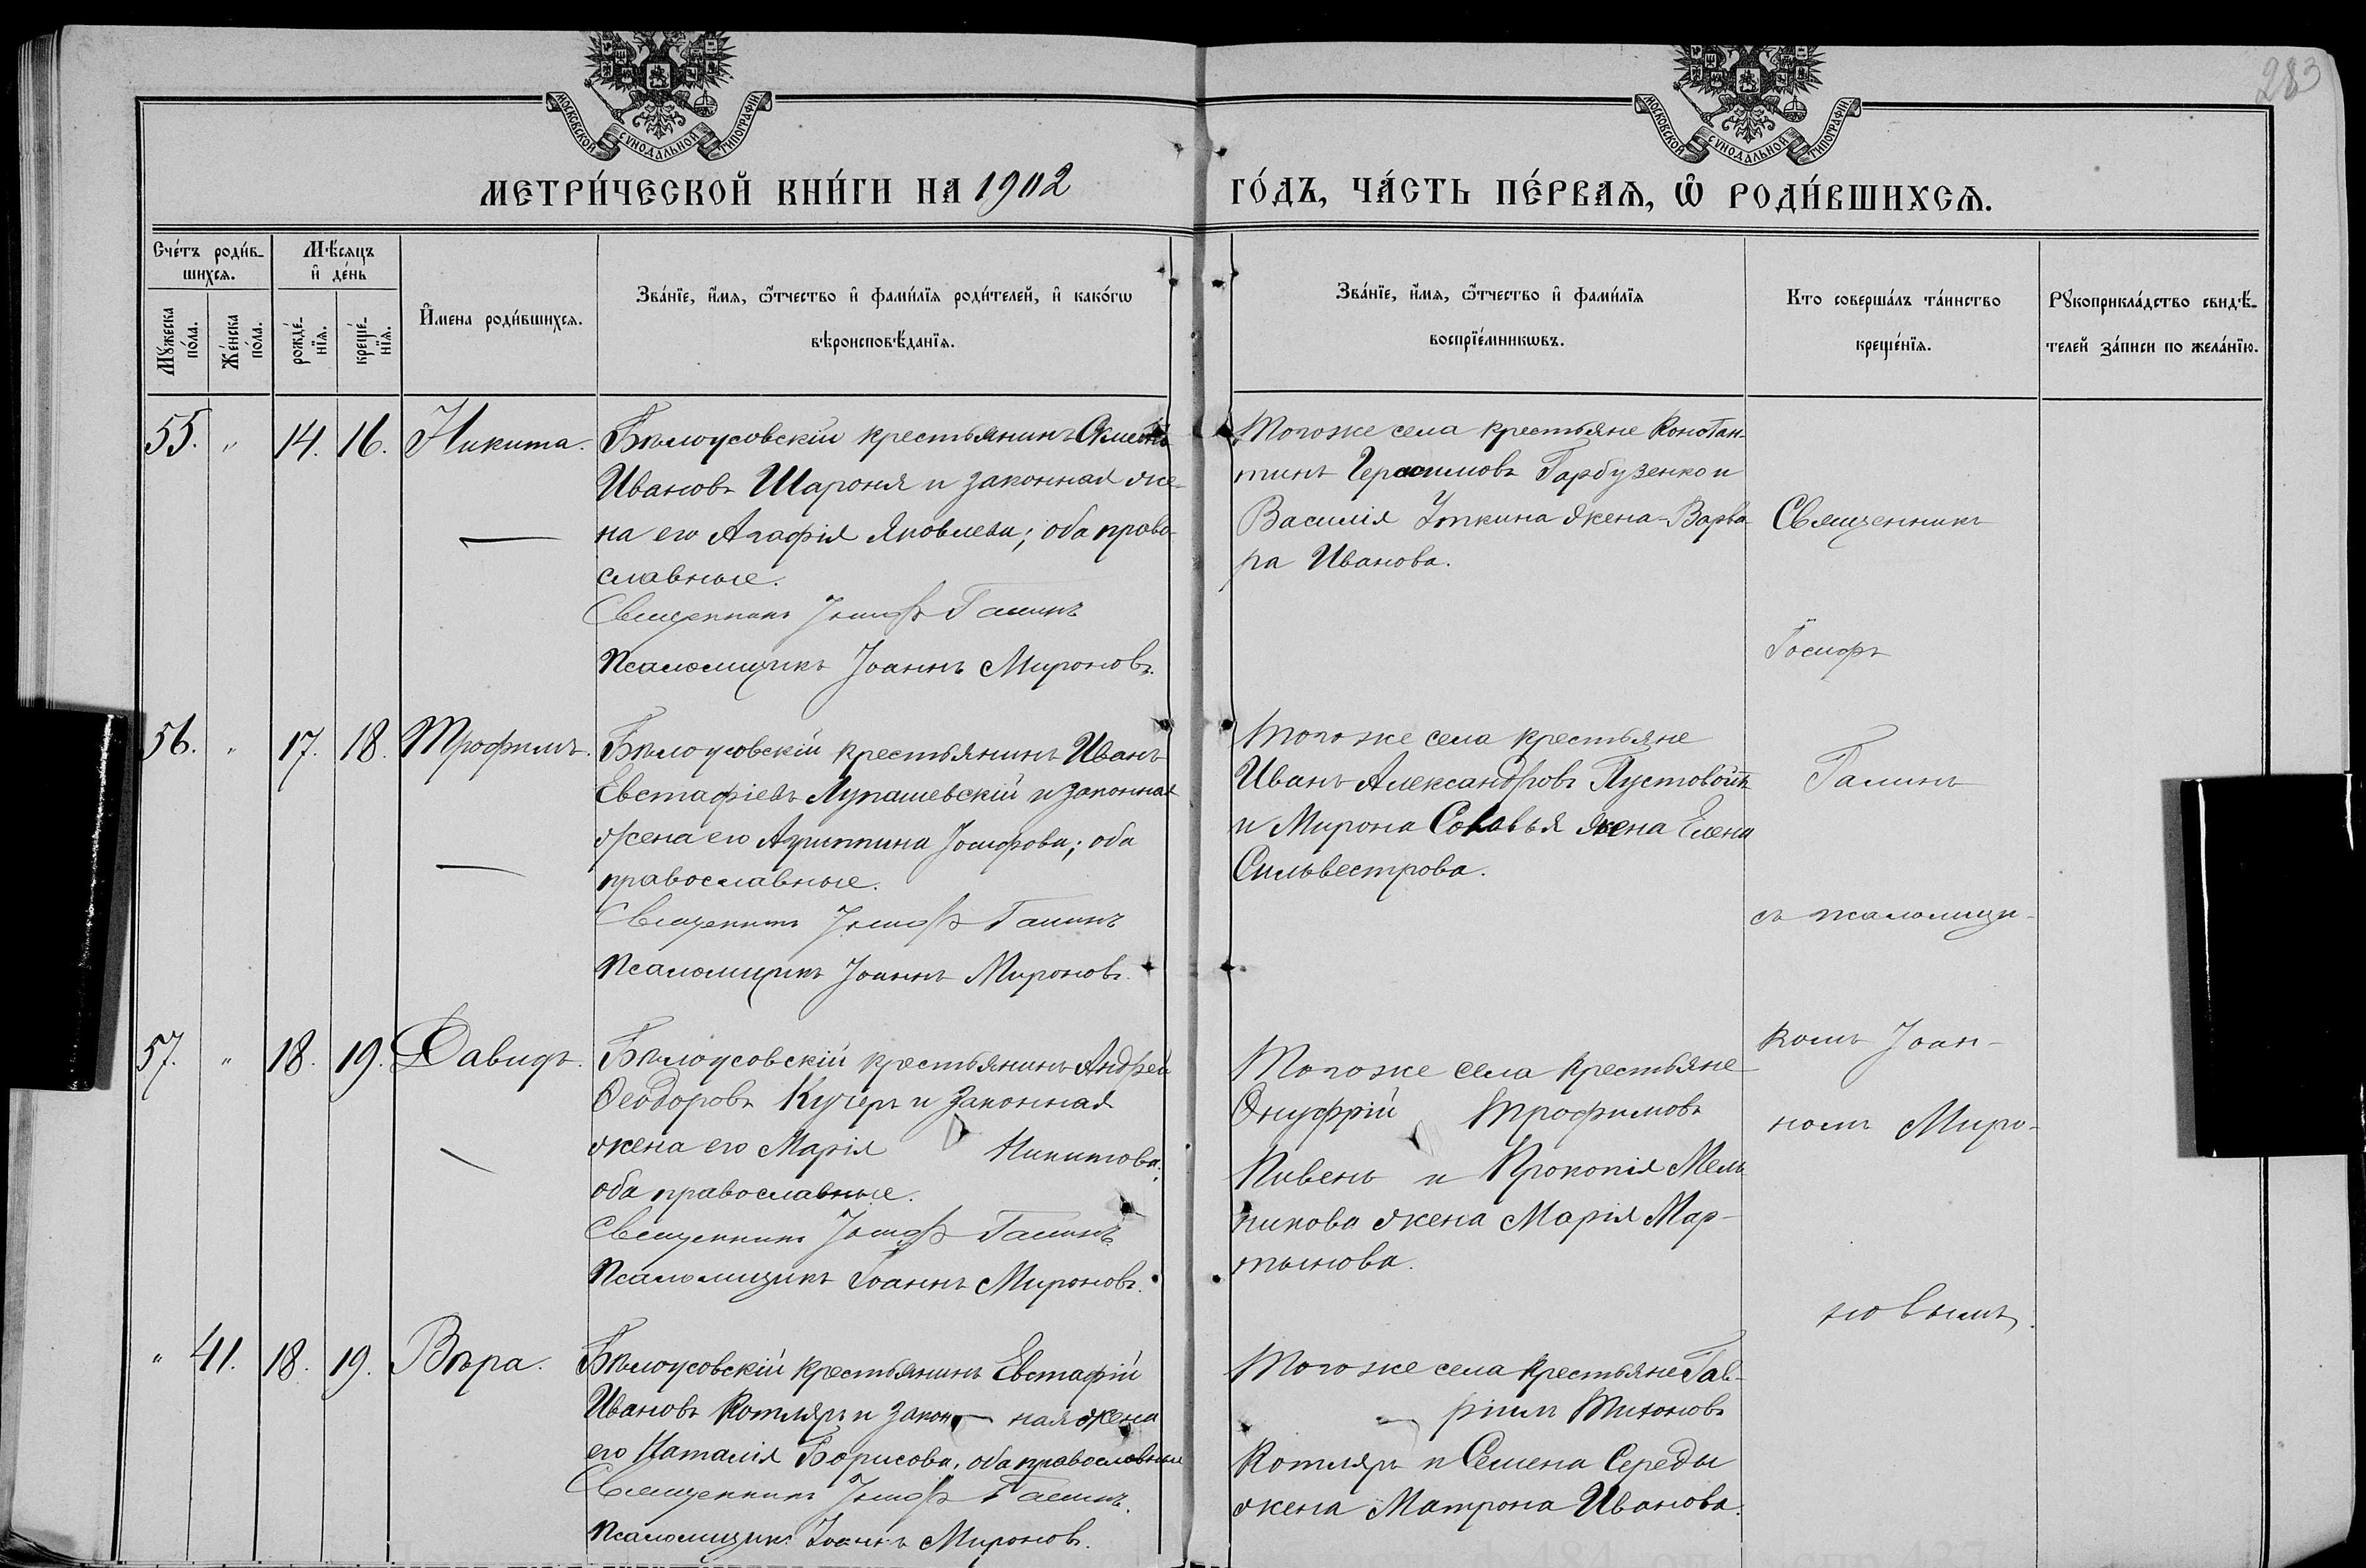 283
МОСКОВСКОЙ СѴНОДАЛЬНОЙ ТИПОГРАФІИ
МОСКОВСКОЙ СѴНОДАЛЬНОЙ ТИПОГРАФІИ
МЕТРИ́ЧЕСКОЙ КНИ́ГИ НА 1902
ГО́ДЪ, ЧА́СТЬ ПЕ́РВАѦ, Ѡ҆ РОДИ́ВШИХСѦ.
Сче́тъ роди́в-
шихсѧ.
Мѣ́сѧцъ
и҆ де́нь
Мꙋ́жеска
по́ла.
Же́нска
по́ла.
рожде́-
нїѧ.
креще́-
нїѧ.
И҆мена роди́вшихсѧ.
Зва́нїе, и҆́мѧ, ѻ҆́тчество и҆ фами́лїѧ роди́телей, и҆ како́гѡ
вѣроисповѣ́данїѧ.
Зва́нїе, и҆́мѧ, ѻ҆́тчество и҆ фами́лїѧ
воспрїе́мникѡвъ.
Кто соверша́лъ та́инство
креще́нїѧ.
Рꙋкоприкла́дство свидѣ́-
телей за́писи по жела́нїю.
55. " 14. 16. Никита.
Бѣлоусовскій крестьянинъ
Ивановъ Шароня и законная же-
на его Агафія Яковлева; оба право-
славные.
Священникъ Іосифъ Галинъ
Псаломщикъ Іоаннъ Мироновъ.
Тогоже села крестьяне Констан-
тинъ Герасимовъ Гарбузенко и
Василія Уткина жена Варва-
ра Иванова.
56. " 17. 18. Трофимъ.
Бѣлоусовскій крестьянинъ Иванъ
Евстафіевъ Лупашевскій и законная
жена его Агриппина Іосифова; оба
православные.
Священникъ Іосифъ Галинъ
Псаломщикъ Іоаннъ Мироновъ.
Того же села крестьяне
Иванъ Александровъ Пустовойтъ
и Мирона Соловья жена Елена
Сильвестрова.
57. " 18. 19. Давидъ.
Бѣлоусовскій крестьянинъ Андрей
Ѳеодоровъ Кучеръ и законная
жена его Марія Никитова;
оба православные.
Священникъ Іосифъ Галинъ
Псаломщикъ Іоаннъ Мироновъ.
Того же села крестьяне
Онуфрій Трофимовъ
Пивень и Прокопія Мель-
никова жена Марія Мар-
тынова.
" 41. 18. 19. Вѣра.
Бѣлоусовскій крестьянинъ Евстафій
Ивановъ Котляръ и закон- ная жена
его Наталія Борисова, оба православные
Священникъ Іосифъ Галинъ.
Псаломщикъ Іоаннъ Мироновъ.
Того же села крестьяне Гав-
ріилъ Тихоновъ
Котляръ и Семена Середы
жена Матрона Иванова.
Священникъ
Іосифъ
Галинъ
съ псаломщи-
комъ Іоан-
номъ Миро-
новымъ.